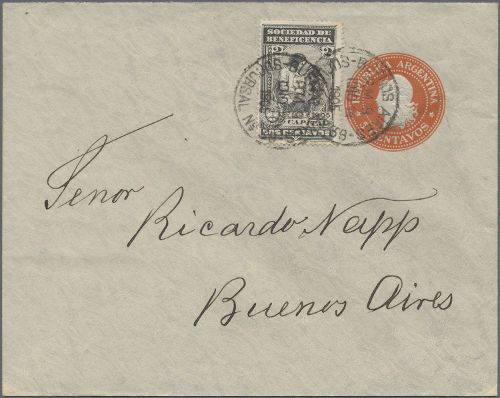 SOCIEDAD DE
BENEFICENCIA
2 2
CAPITAL
DOS CENTAVOS
REPUBLICA ARGENTINA
CENTAVOS
Senor
Ricardo Napp
Buenos Aires